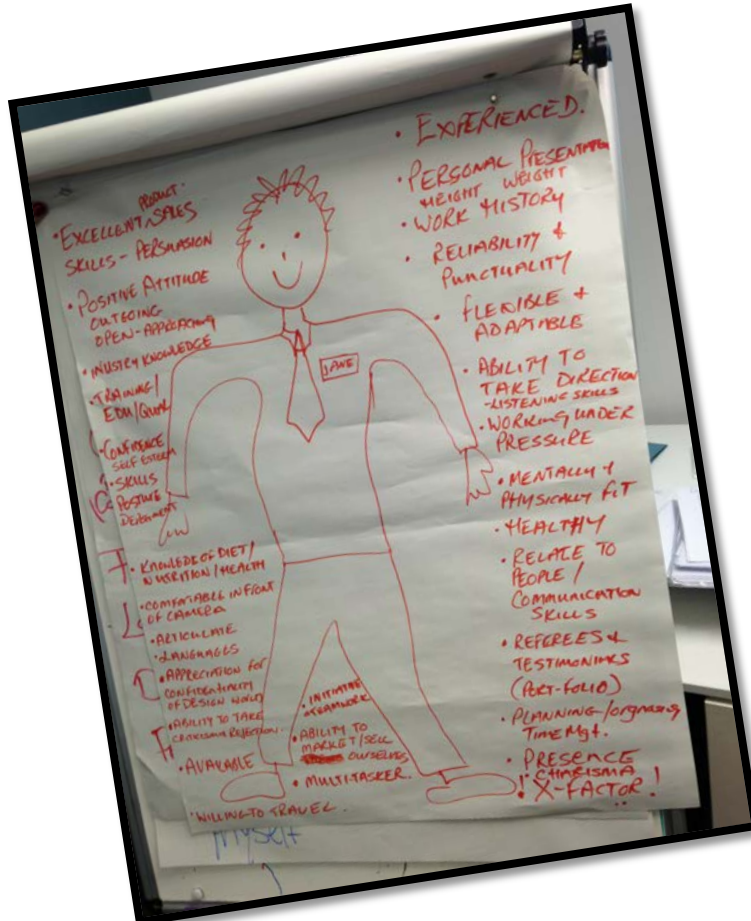 PRODUCT.
• EXCELLENT SALES
SKILLS - PERSUASION
• POSITIVE ATTITUDE
OUTGOING
OPEN-APPROACHING
• INUSTRY KNOWLEDGE
• TRAINING/
EDU/QUAL
• CONFIDENCE
SELF ESTEEM
• SKILLS
POSTIVE
• KNOWLEDGE OF DIET/
NUTRITION/HEALTH
• COMFORTABLE IN FRONT
OF CAMERA
• ARTICULATE
• LANGUAGES
• APPRECIATION FOR
CONFIDENTIALITY
OF DESIGN WORLD
• ABILITY TO TAKE
CRITICISM REJECTION.
• AVAILABLE
• WILLING TO TRAVEL.
JANE
• INITIATIVE
• TEAMWORK
• ABILITY TO
MARKET/SELL
OURSELVES
• MULTI-TASKER.
• EXPERIENCED.
• PERSONAL PRESENTATION
HEIGHT WEIGHT
• WORK HISTORY
• RELIABILITY &
PUNCTUALITY
• FLEXIBLE +
ADAPTABLE
• ABILITY TO
TAKE DIRECTION
- LISTENING SKILLS
• WORKING UNDER
PRESSURE
• MENTALLY &
PHYSICALLY FIT
• HEALTHY
• RELATE TO
PEOPLE /
COMMUNICATION
SKILLS
• REFEREES &
TESTIMONIALS
(PORT-FOLIO)
• PLANNING/organising
TIME Mgt.
• PRESENCE
CHARISMA
! X-FACTOR !
myself